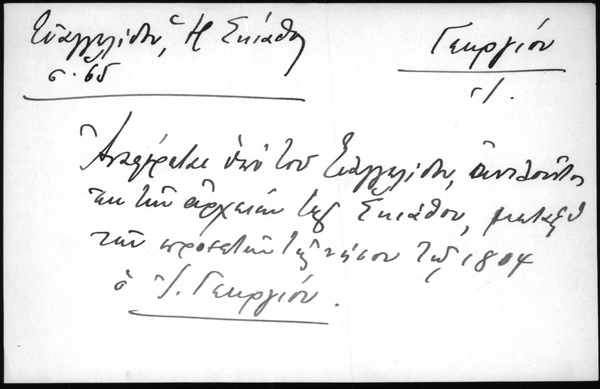 Εὐαγγελίδου, Ἡ Σκίαθος
σ. 65
Γεωργίου
Ἰ.
Ἀναφέρεται ὑπὸ τοῦ Εὐαγγελίδου, ἀντλοῦντος
ἐκ τῶν ἀρχείων τῆς Σκιάθου, μεταξὺ
τῶν προεστῶν τῆς νήσου τῷ 1804
ὁ Ἰ. Γεωργίου.